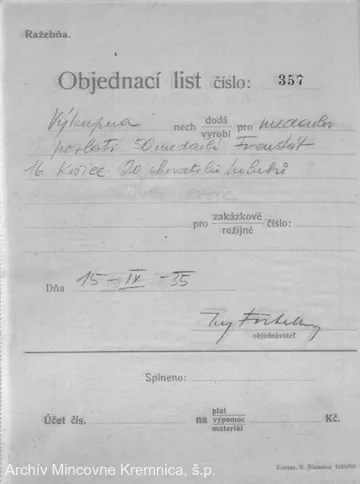 Ražebňa.
Objednací list číslo: 357
Výkupna nech dodá vyrobí pro medailov
pozlatí 50 medailí
16 Košice 20 chovatelů
pro zakázkové režijné číslo:
Dňa 15-IX-35
objednávateľ.
Splneno:
Účet čís. na plat výpomoc materiál Kč.
Archív Mincovne Kremnica, š.p.